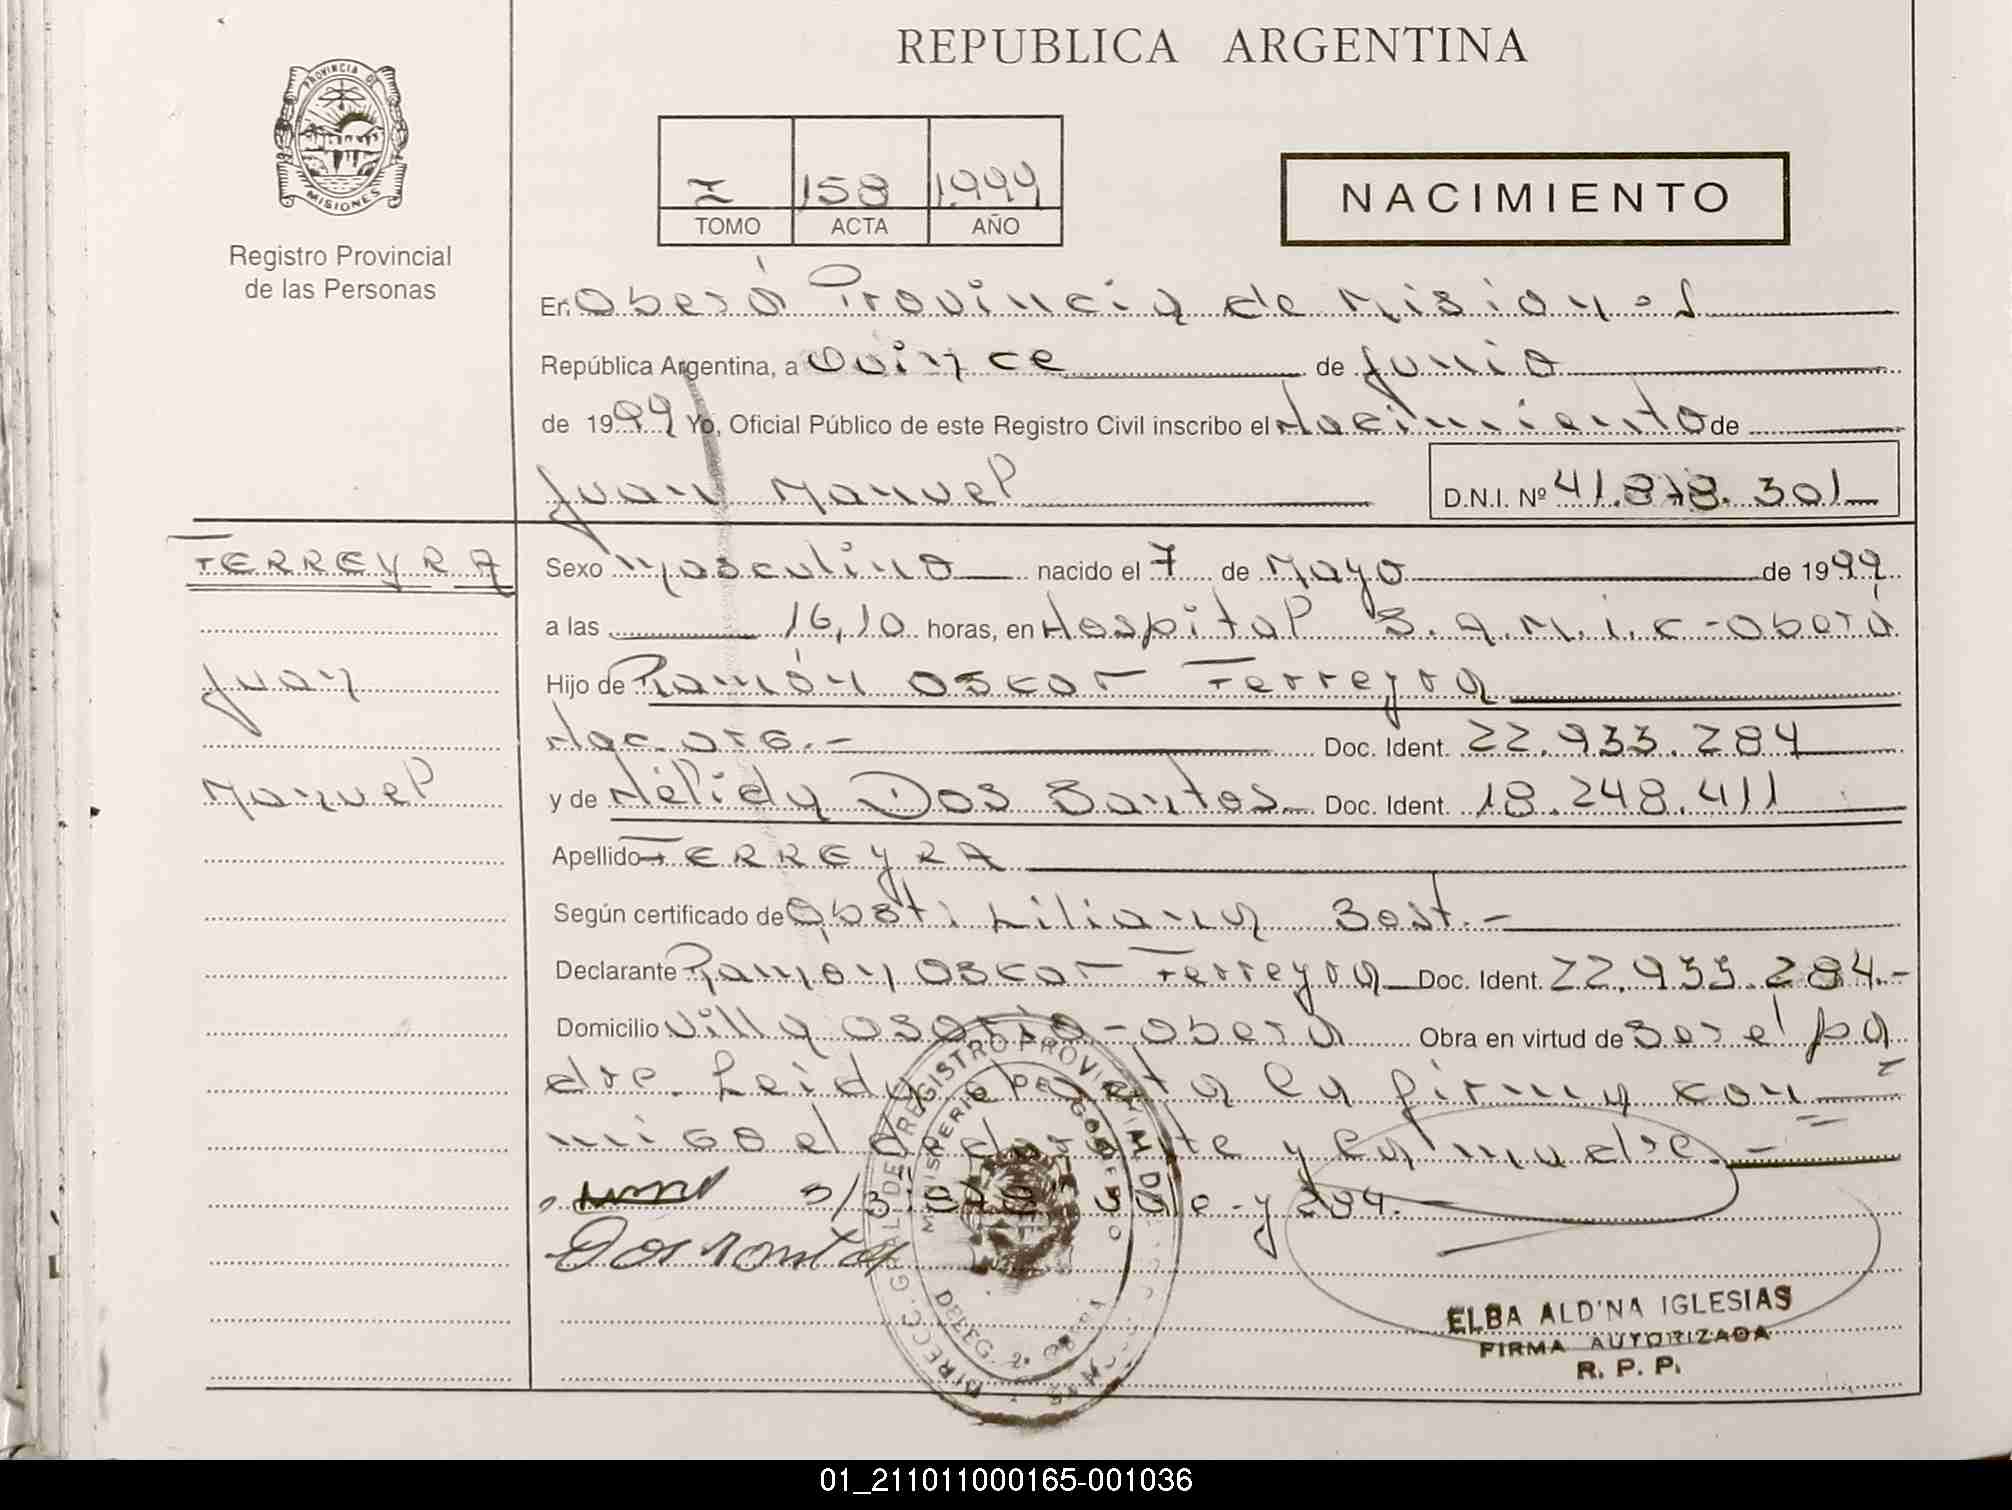 REPUBLICA ARGENTINA
PROVINCIA DE
MISIONES
Registro Provincial
de las Personas
I 158 1.999
TOMO ACTA AÑO
NACIMIENTO
En Oberá Provincia de Misiones
República Argentina, a Quince de Junio
de 1999 Yo, Oficial Público de este Registro Civil inscribo el Nacimiento de
Juan Manuel D.N.I. Nº 41.878.301
FERREYRA
Juan
Manuel
Sexo Masculino nacido el 7 de Mayo de 1999
a las 16,10 horas, en Hospital S.A.M.i.c - Oberá
Hijo de Ramón Oscar Ferreyra
Nac. Arg.- Doc. Ident. 22.933.284
y de Nélida Dos Santos Doc. Ident. 18.248.411
Apellido FERREYRA
Según certificado de Obst. Liliana Sost.-
Declarante Ramón Oscar Ferreyra Doc. Ident. 22.933.284.-
Domicilio Villa Osorio - Oberá Obra en virtud de ser el pa
dre. Leida el acta la firma con
migo el declarante y la madre.-
s/B: 878 vale - y 284.
Dos Santos
DIRECC. GRAL DEL REGISTRO PROVINCIAL DE
MINISTERIO DE GOBIERNO
DELEG. 2º
ELBA ALDINA IGLESIAS
FIRMA AUTORIZADA
R. P. P.
01_211011000165-001036